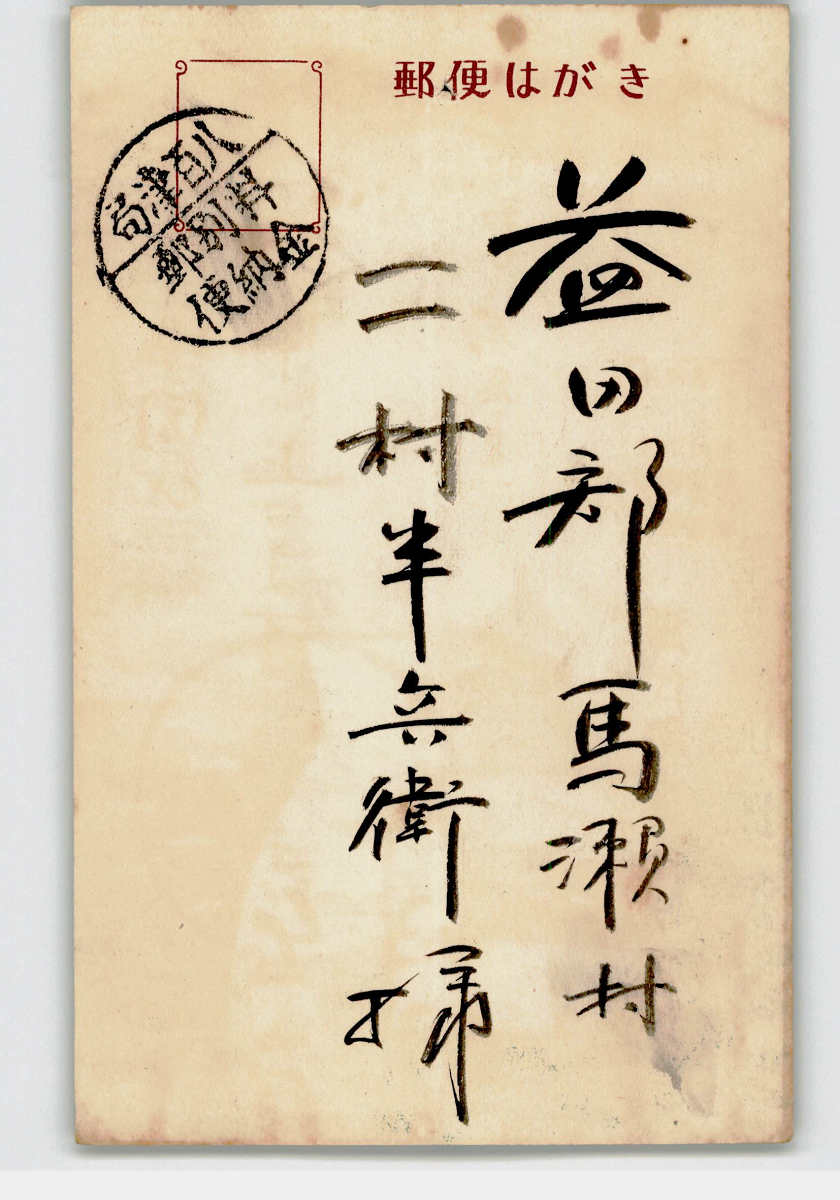 郵便はがき
八百津局
料金別納郵便
益田郡馬瀬村
二村半兵衛様